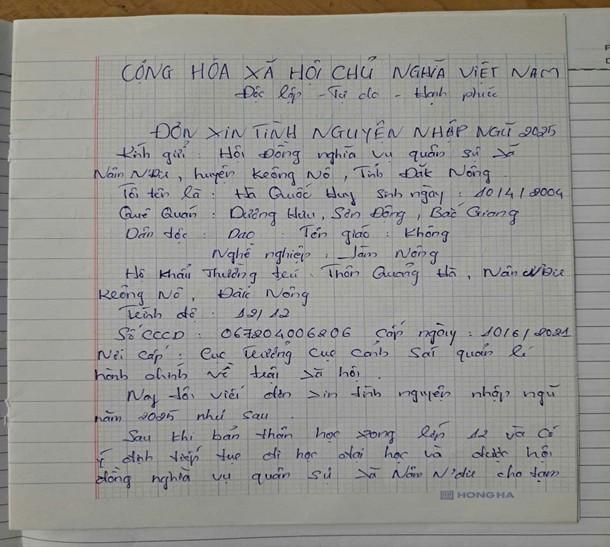 CỘNG HÒA XÃ HỘI CHỦ NGHĨA VIỆT NAM
Độc lập - Tự do - Hạnh phúc
ĐƠN XIN TÌNH NGUYỆN NHẬP NGŨ 2025
Kính gửi : Hội Đồng nghĩa vụ quân sự xã
Nâm N'Đir, huyện Krông Nô, Tỉnh Đắk Nông.
Tôi tên là : Hà Quốc Huy Sinh ngày : 10/4/2004
Quê Quán : Dương Hưu, Sơn Động, Bắc Giang
Dân tộc : Dao . Tôn giáo : Không
Nghề nghiệp : Làm Nông
Hộ khẩu Thường trú : Thôn Quảng Hà, Nâm N'Đir
Krông Nô, Đắk Nông
Trình độ : 12/12
Số CCCD : 067204006206 Cấp ngày : 10/6/2021
Nơi cấp : Cục Trưởng Cục cảnh sát quản lí
hành chính về trật xã hội.
Nay tôi viết đơn xin tình nguyện nhập ngũ
năm 2025 như sau .
Sau khi bản thân học xong lớp 12 và có
ý định tiếp tục đi học đại học và được hội
đồng nghĩa vụ quân sự xã Nâm N'đir cho tạm
HONG HA